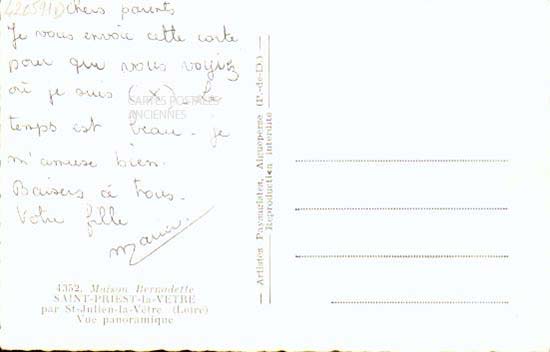 420591D chers parents
Je vous envoie cette carte
pour que vous voyiez
où je suis (x). Le
CARTES POSTALES
ANCIENNES
temps est beau. je
m'amuse bien.
Baisers à tous.
Votre fille
Marie.
4352. Maison Bernadette
SAINT-PRIEST-la-VETRE
par St-Julien-la-Vêtre (Loire)
Vue panoramique
Artistes Paysagistes, Aigueperse (P.-de-D.)
Reproduction interdite